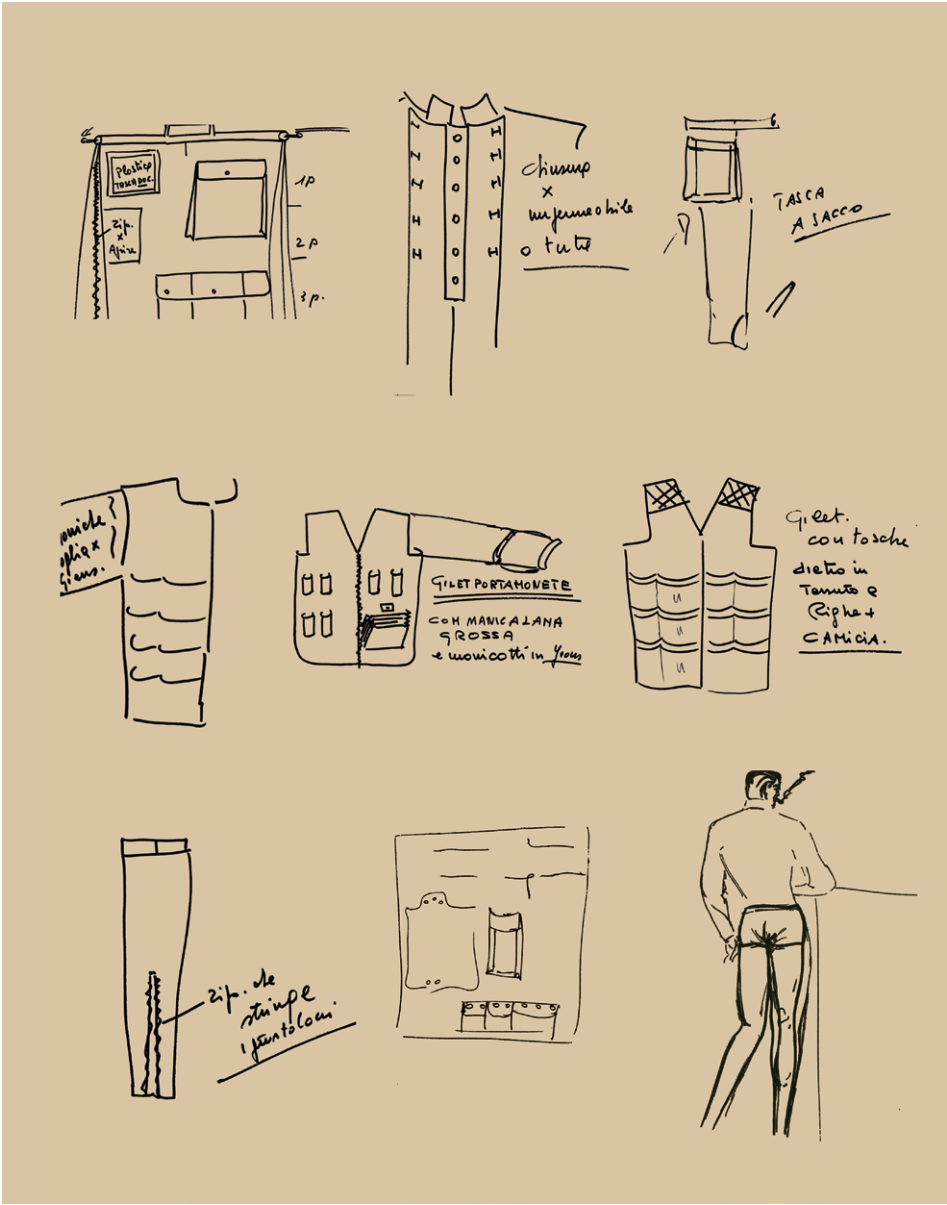 Plastica
TASCA DOC.
Zip.
x
Aprire
1P
2P
3p.
chiusura
x
impermeabile
o tute
TASCA
A SACCO
maniche
x
GILET PORTAMONETE
CON MANICA LANA
GROSSA
e manicotti in
Gilet.
con tasche
dietro in
Tessuto a
Righe x
CAMICIA.
Zip. che
stringe
i pantaloni